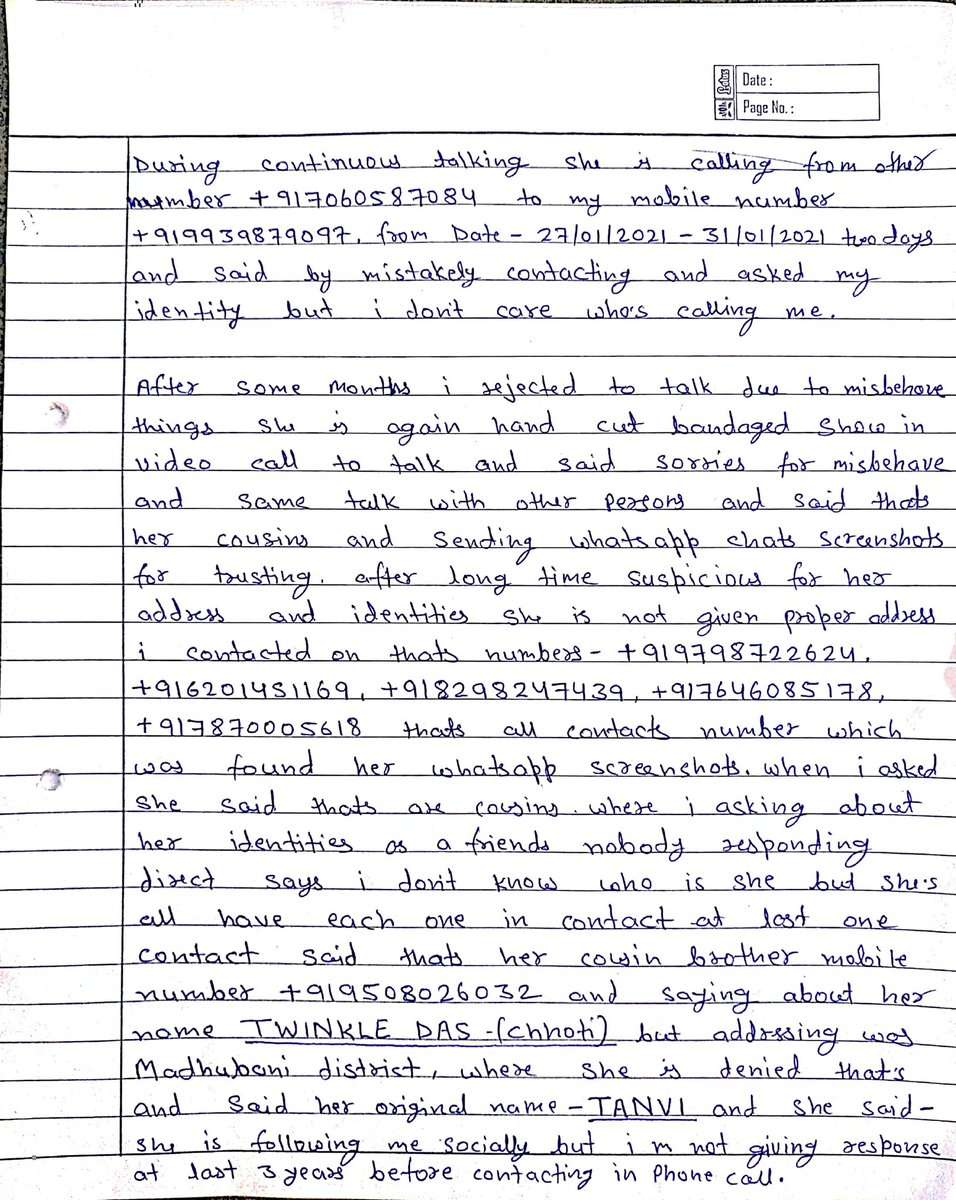 Date :
Page No. :
During continuous talking she is calling from other
number +917060587084 to my mobile number
+919939879097, from Date - 27/01/2021 - 31/01/2021 two days
and said by mistakely contacting and asked my
identity but i don't care who's calling me.
After some months i rejected to talk due to misbehave
things she is again hand cut bandaged show in
video call to talk and said sorries for misbehave
and same talk with other persons and said thats
her cousins and sending whatsapp chats screenshots
for trusting. after long time suspicious for her
address and identities she is not given proper address
i contacted on thats numbers - +919798722624,
+916201451169, +918298247439, +917646085178,
+917870005618 thats all contacts number which
was found her whatsapp screenshots. when i asked
she said thats are cousins. where i asking about
her identities as a friends nobody responding
direct says i don't know who is she but she's
all have each one in contact at last one
contact said thats her cousin brother mobile
number +919508026032 and saying about her
name TWINKLE DAS -(chhoti) but addressing was
Madhubani district, where she is denied that's
and said her original name - TANVI and she said -
she is following me socially but i m not giving response
at last 3 years before contacting in Phone call.